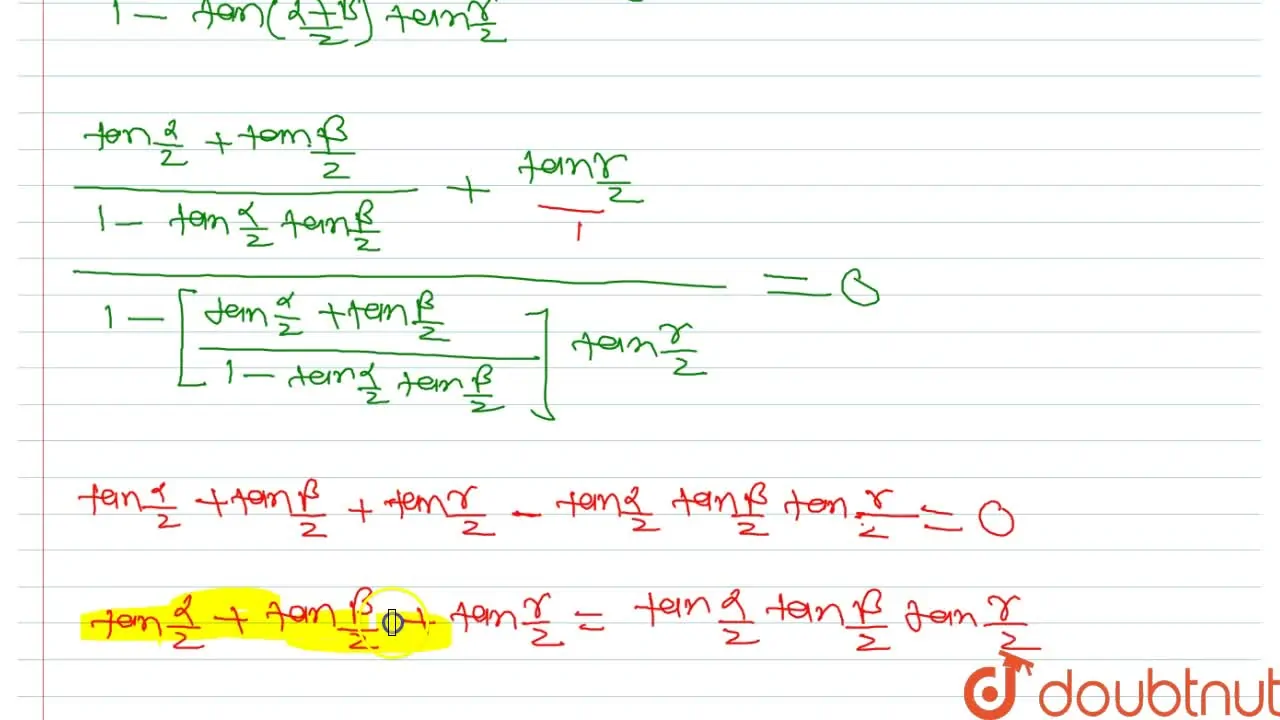 1 - tan(α+β/2) tan γ/2
tan α/2 + tan β/2
1 - tan α/2 tan β/2
+ tan γ/2
1
= 0
1 - [
tan α/2 + tan β/2
1 - tan α/2 tan β/2
] tan γ/2
tan α/2 + tan β/2 + tan γ/2 - tan α/2 tan β/2 tan γ/2 = 0
tan α/2 + tan β/2 + tan γ/2 = tan α/2 tan β/2 tan γ/2
doubtnut